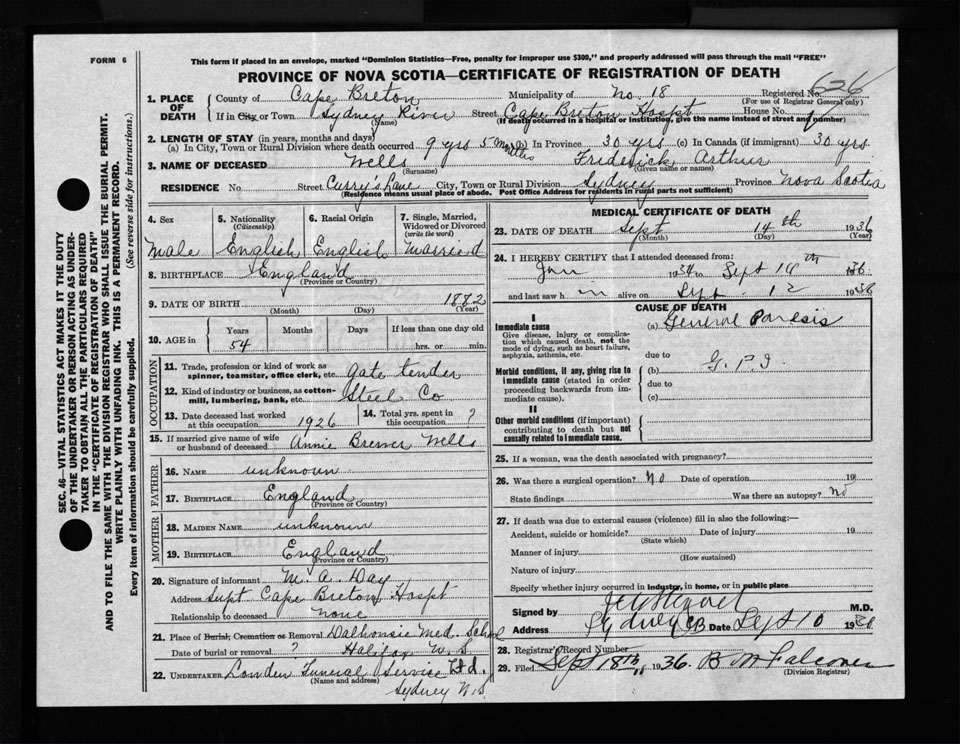 FORM 6
This form if placed in an envelope, marked "Dominion Statistics—Free, penalty for improper use $300," and properly addressed will pass through the mail "FREE"
PROVINCE OF NOVA SCOTIA—CERTIFICATE OF REGISTRATION OF DEATH
626
1. PLACE OF DEATH
County of Cape Breton Municipality of No. 18 Registered No.
(For use of Registrar General only)
If in City or Town Sydney River Street Cape Breton Hospt House No.
(Name) (If death occurred in a hospital or institution, give the name instead of street and number)
2. LENGTH OF STAY (in years, months and days)
(a) In City, Town or Rural Division where death occurred 9 yrs 5 (b) In Province 30 yrs (c) In Canada (if immigrant) 30 yrs
3. NAME OF DECEASED Wells Frederick Arthur
(Surname) (Given name or names)
RESIDENCE No. Street Curry's Lane City, Town or Rural Division Sydney Province Nova Scotia
(Residence means usual place of abode. Post Office Address for residents in rural parts not sufficient)
4. Sex 5. Nationality (Citizenship) 6. Racial Origin 7. Single, Married, Widowed or Divorced (write the word)
Male English English Married
8. BIRTHPLACE England
(Province or Country)
9. DATE OF BIRTH 1882
(Month) (Day) (Year)
10. AGE in Years Months Days If less than one day old
54 hrs. or min.
OCCUPATION
11. Trade, profession or kind of work as spinner, teamster, office clerk, etc. gate tender
12. Kind of industry or business, as cotton-mill, lumbering, bank, etc. Steel Co
13. Date deceased last worked at this occupation 1926 14. Total yrs. spent in this occupation ?
15. If married give name of wife or husband of deceased Annie Brewer Wells
FATHER
16. NAME unknown
17. BIRTHPLACE England
(Province or Country)
MOTHER
18. MAIDEN NAME unknown
19. BIRTHPLACE England
(Province or Country)
20. Signature of informant M. A. Day
Address Supt Cape Breton Hospt
Relationship to deceased none
21. Place of Burial, Cremation or Removal Dalhousie Med. School
Date of burial or removal ? Halifax N. S.
22. UNDERTAKER Lowden Funeral Service Ltd.
(Name and address) Sydney N.S
MEDICAL CERTIFICATE OF DEATH
23. DATE OF DEATH Sept 14th 1936
(Month) (Day) (Year)
24. I HEREBY CERTIFY that I attended deceased from:
Jan 1934 to Sept 14th 1936
and last saw him alive on Sept 12 1936
CAUSE OF DEATH
I
Immediate cause (a) General Paresis
Give disease, injury or complication which caused death, not the mode of dying, such as heart failure, asphyxia, asthenia, etc.
due to
Morbid conditions, if any, giving rise to immediate cause (stated in order proceeding backwards from immediate cause). (b) G.P.I
due to
(c)
II
Other morbid conditions (if important) contributing to death but not causally related to immediate cause.
25. If a woman, was the death associated with pregnancy?
26. Was there a surgical operation? No Date of operation 19
State findings Was there an autopsy? No
27. If death was due to external causes (violence) fill in also the following:—
Accident, suicide or homicide? Date of injury 19
(State which)
Manner of injury
(How sustained)
Nature of injury
Specify whether injury occurred in industry, in home, or in public place
Signed by M.D.
Address Sydney CB Date Sept 10 1936
28. Registrar's Record Number
29. Filed Sept 18th, 1936.
(Division Registrar)
SEC. 46—VITAL STATISTICS ACT MAKES IT THE DUTY
OF THE UNDERTAKER OR PERSON ACTING AS UNDER-
TAKER TO OBTAIN ALL THE PARTICULARS REQUIRED
IN THE "CERTIFICATE OF REGISTRATION OF DEATH"
AND TO FILE THE SAME WITH THE DIVISION REGISTRAR WHO SHALL ISSUE THE BURIAL PERMIT.
WRITE PLAINLY WITH UNFADING INK. THIS IS A PERMANENT RECORD.
Every item of information should be carefully supplied. (See reverse side for instructions.)